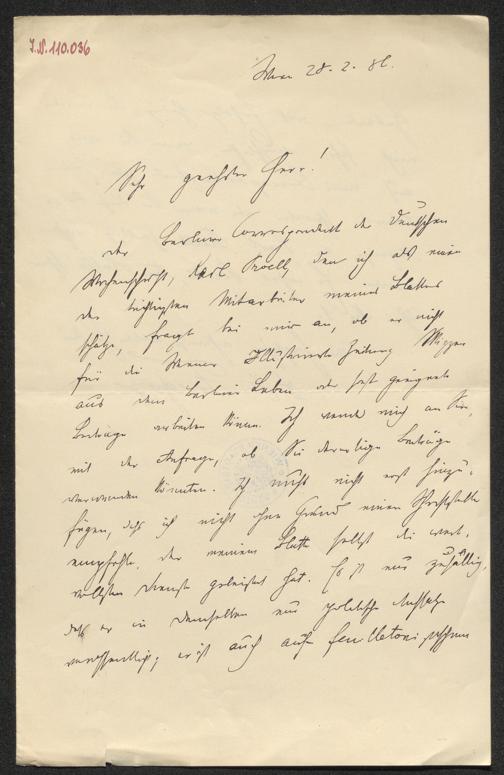 J.N. 110.036
Wien 28. 2. 86.
Sehr geehrter Herr!
der Berliner Correspondent der Deutschen
Wochenschrift, Karl Proell, den ich als einen
der tüchtigsten Mitarbeiter meines Blattes
schätze, fragt bei mir an, ob er nicht
für die Wiener Illustrirte Zeitung Skizzen
aus dem Berliner Leben oder sonst geeignete
Beiträge arbeiten könne. Ich wende mich an Sie,
mit der Anfrage, ob Sie derartige Beiträge
verwenden könnten. Ich muß nicht erst hinzu-
fügen, daß ich nicht ohne Grund einen Schriftsteller
empfehle, der meinem Blatte selbst die wert-
vollsten Dienste geleistet hat. Es ist nur zufällig,
daß er in demselben nur politische Aufsätze
veröffentlicht; er ist auch auf feuilletonistischem